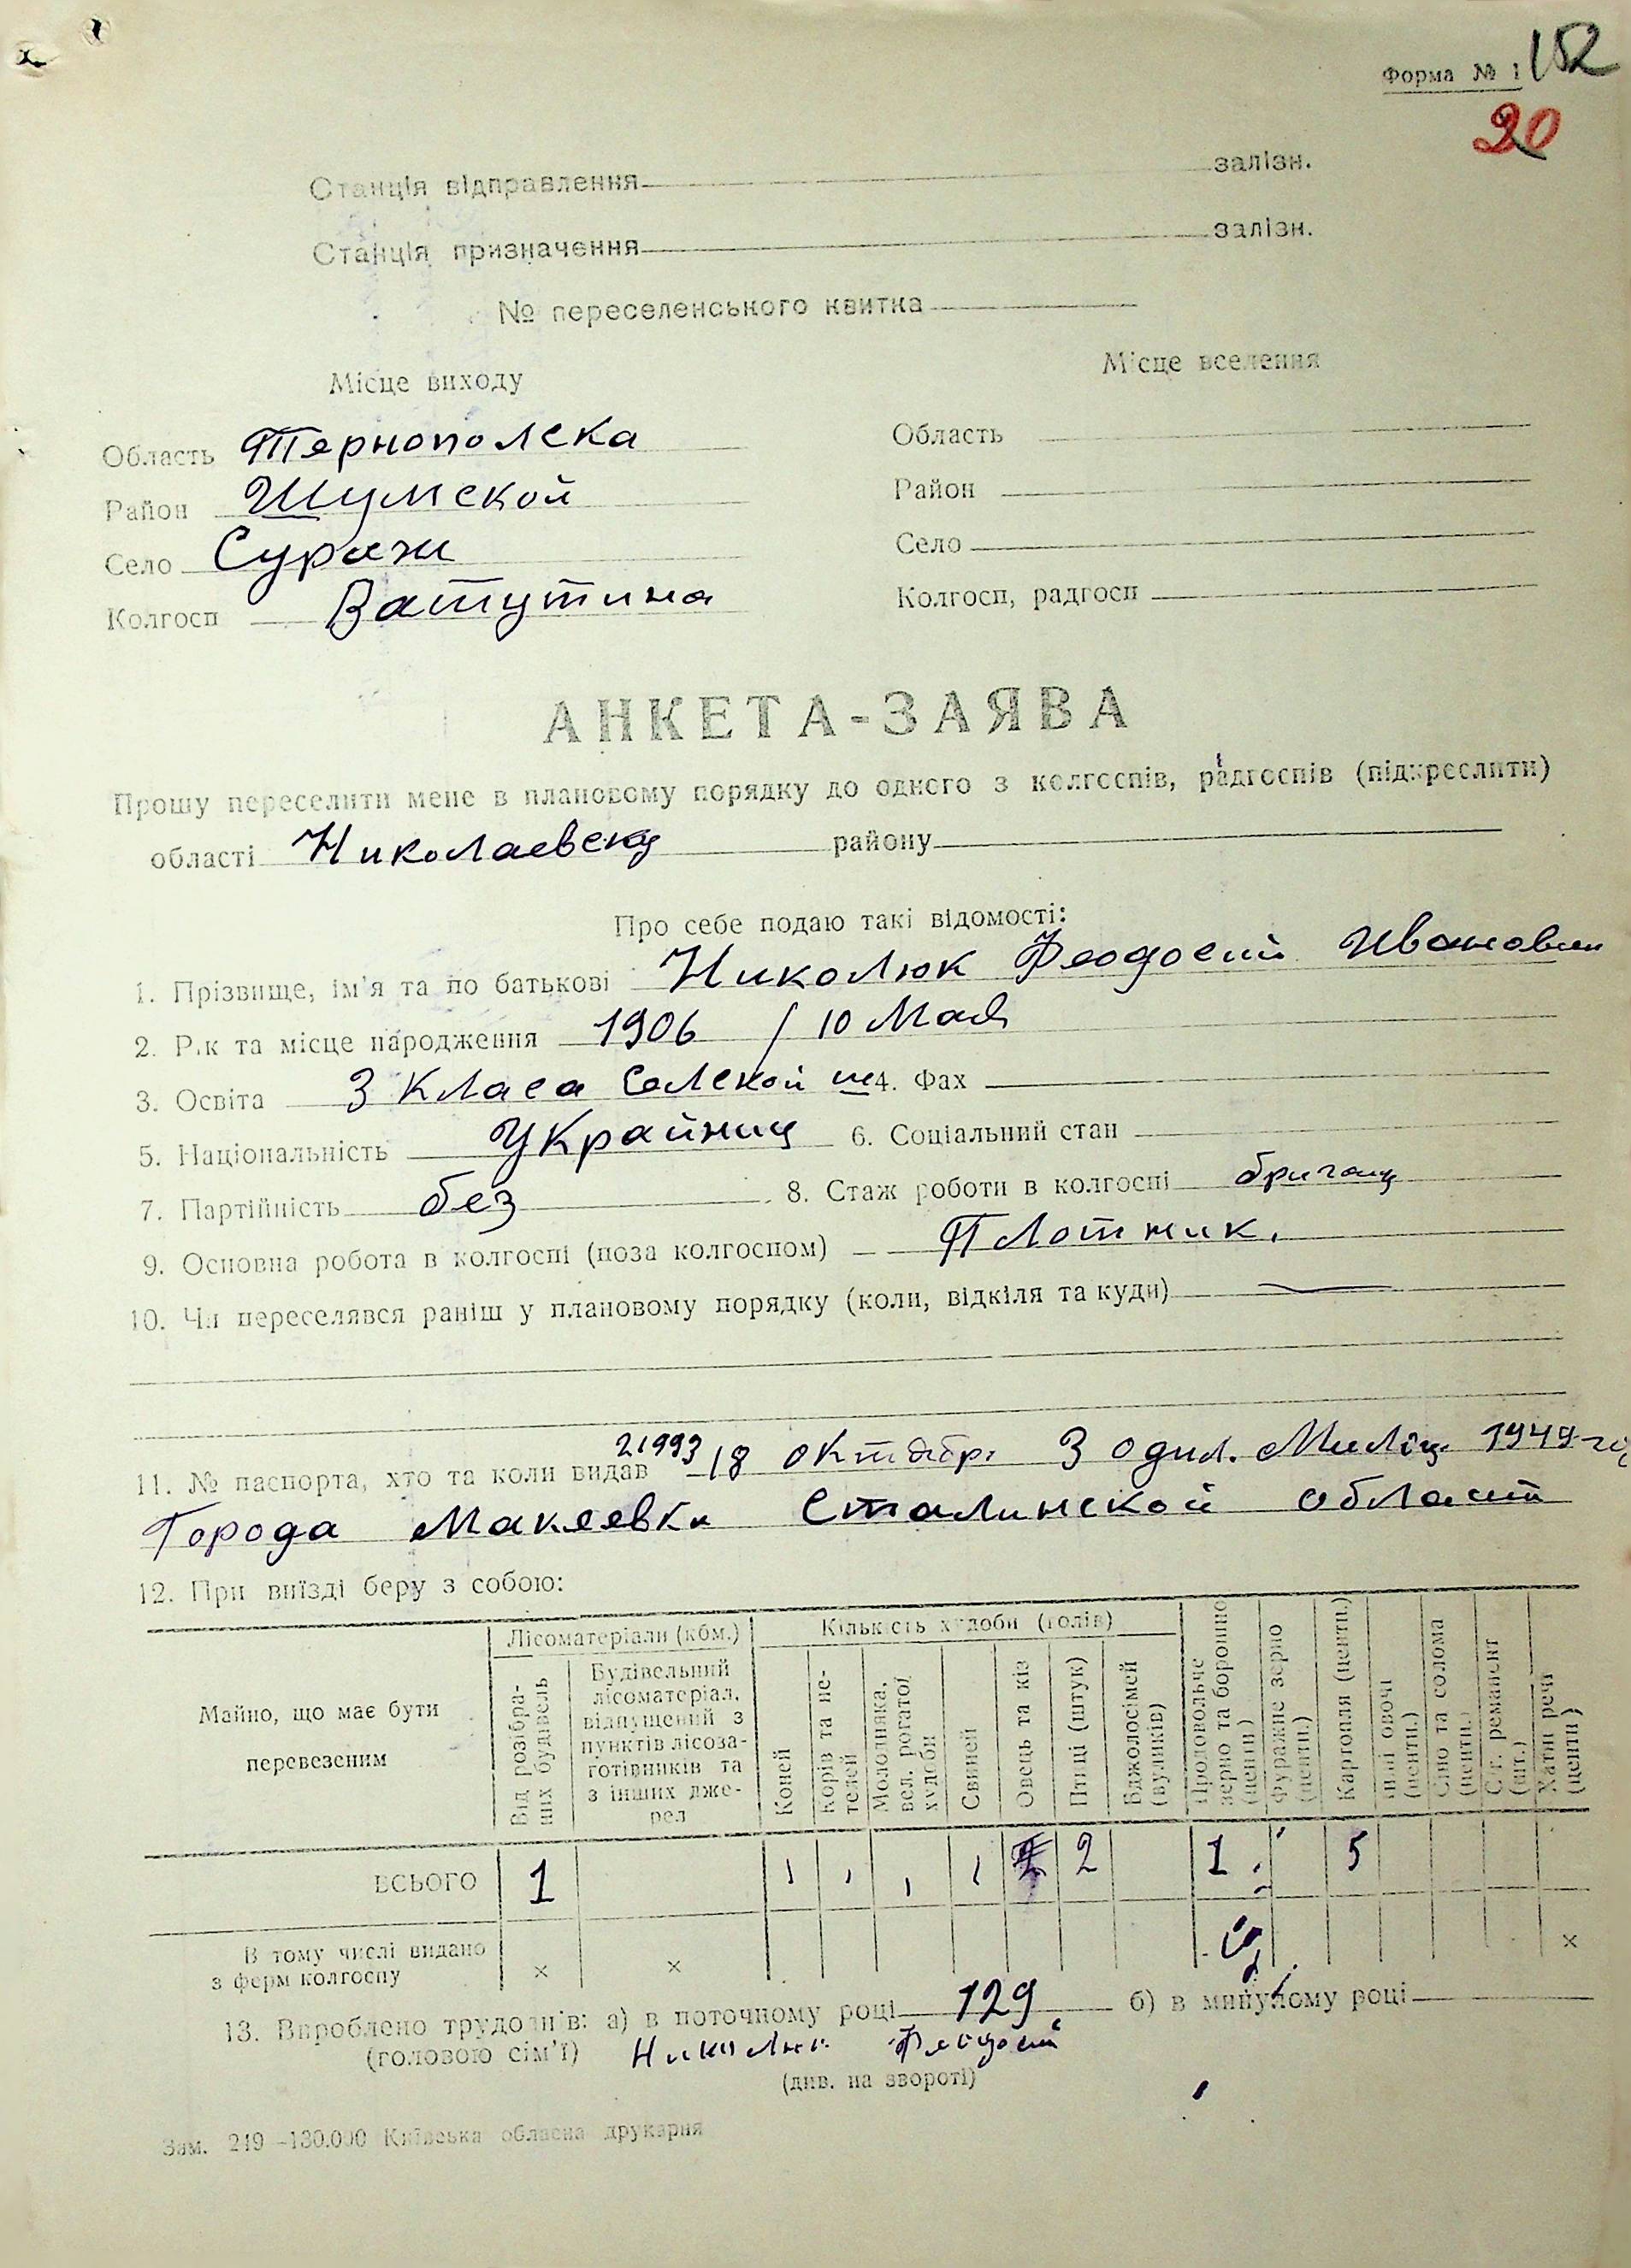 Форма № 1 152
20
Станція відправлення залізн.
Станція призначення залізн.
№ переселенського квитка
Місце виходу Місце вселення
Область Тернополска Область
Район Шумской Район
Село Сураж Село
Колгосп Ватутина Колгосп, радгосп
АНКЕТА-ЗАЯВА
Прошу переселити мене в плановому порядку до одного з колгоспів, радгоспів (підкреслити)
області району
Про себе подаю такі відомості:
1. Прізвище, ім'я та по батькові Николюк Феодосий Иванович
2. Рік та місце народження 1906 / 10 Мая
3. Освіта 3 Класа Селской ш 4. Фах
5. Національність Украйниц 6. Соціальний стан
7. Партійність без 8. Стаж роботи в колгоспі
9. Основна робота в колгоспі (поза колгоспом) Плотник.
10. Чи переселявся раніш у плановому порядку (коли, відкіля та куди) —
11. № паспорта, хто та коли видав 21993 18 октябр. 3 1949
Города Макеевки Сталинской област
12. При виїзді беру з собою:
Майно, що має бути перевезеним
Лісоматеріали (кбм.)
Від розібраних будівель
Будівельний лісоматеріал, відпущений з пунктів лісозаготівників та з інших джерел
Кількість худоби (голів)
Коней
Корів та нетелей
Молодняка, вел. рогатої худоби
Свиней
Овець та кіз
Птиці (штук)
Бджолосімей (вуликів)
Продовольче зерно та борошно (центн.)
Фуражне зерно (центн.)
Картопля (центн.)
Інші овочі (центн.)
Сіно та солома (центн.)
С.г. реманент (шт.)
Хатні речі (центн.)
ВСЬОГО 1 2 1 5
В тому числі видано з ферм колгоспу × × ×
13. Вироблено трудоднів: а) в поточному році 129 б) в минулому році
(головою сім'ї) Николюк Феодосий
(див. на звороті)
Зам. 249—130.000 Київська обласна друкарня